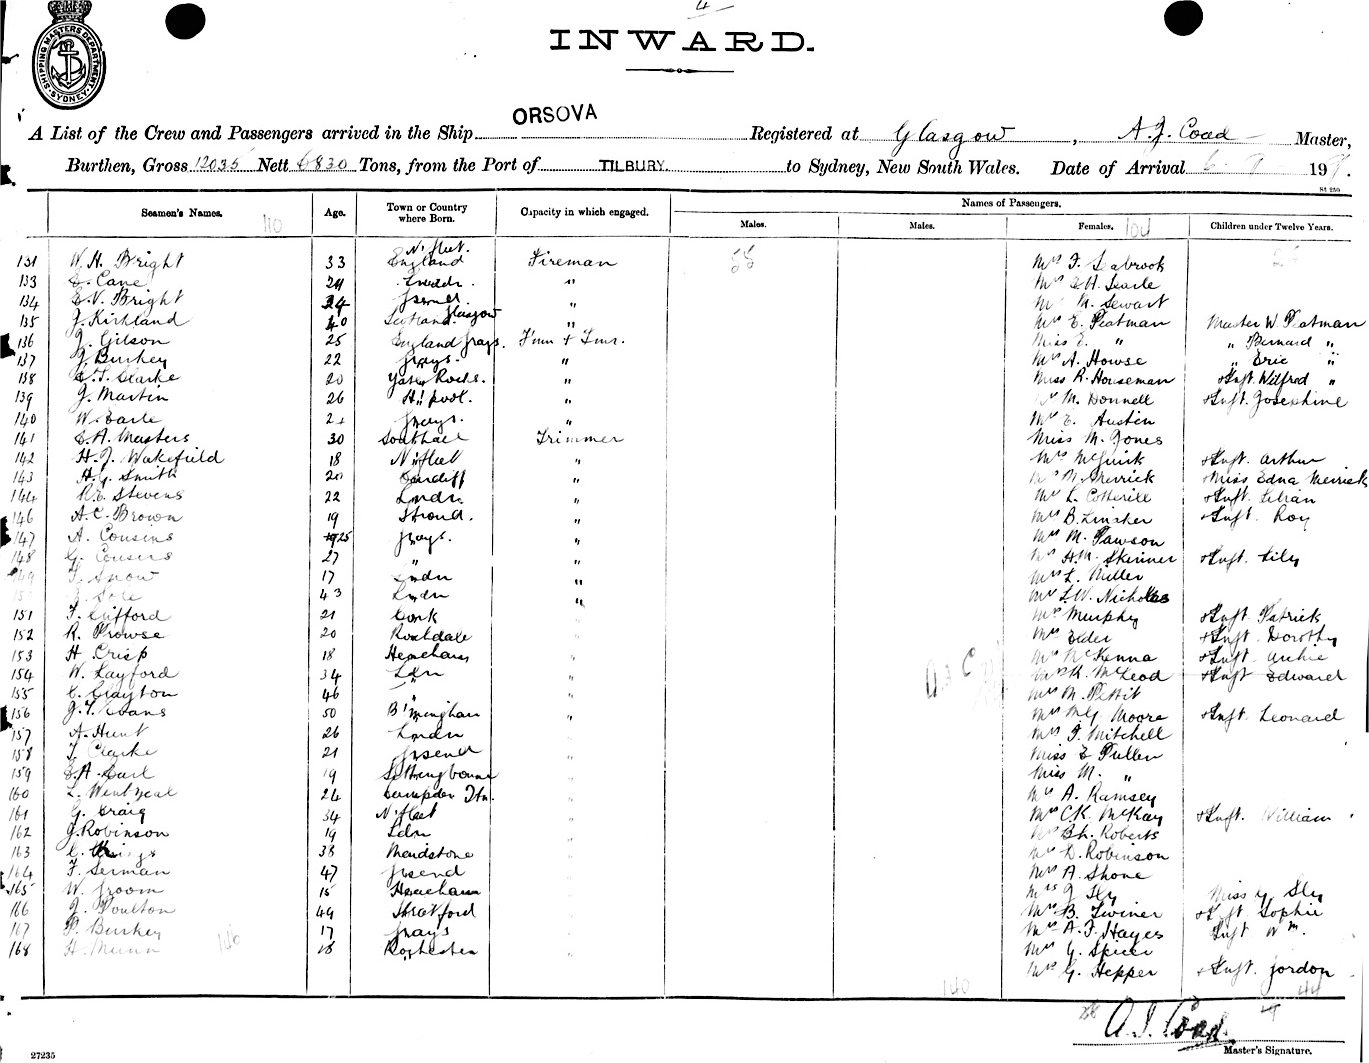 4
SHIPPING MASTERS DEPARTMENT SYDNEY
INWARD.
A List of the Crew and Passengers arrived in the Ship ORSOVA Registered at Glasgow, A. J. Coad Master,
Burthen, Gross 12035 Nett 6830 Tons, from the Port of TILBURY. to Sydney, New South Wales. Date of Arrival 6 9 191
St 250
Seamen's Names. Age. Town or Country where Born. Capacity in which engaged. Names of Passengers.
Males. Males. Females. Children under Twelve Years.
110 104
131 W. H. Bright 33 N'fleet. England Fireman Mrs F. Seabrook
133 E. Cane 24 " Mrs Searle
134 E. V. Bright 24 " M. Sewart
135 J. Kirkland 40 Scotland. Glasgow " Mrs E. Peatman Master W Peatman
136 J. Gilson 25 England Grays. Miss E. " " Bernard "
137 J. Burkey 22 Grays. " Mrs A. Howse " Eric "
138 Clarke 20 " Miss R. Houseman Inft. Wilfred "
139 J. Martin 26 H'pool. " M. Donnell Inft. Josephine
140 W. Earle Grays. " Mrs E. Austin
141 E. A. Masters 30 Southall Trimmer Miss M. Jones
142 H. J. Wakefield 18 N'fleet " Mrs McGuirk Inft. Arthur
143 H. G. Smith 20 Cardiff " M. Merrick Miss Edna Merrick
144 Stevens 22 Londn " Mrs L. Cotterill Inft. Lilian
146 A. C. Brown 19 Stroud. " Mrs B. Linsher Inft. Roy
147 A. Cousins 25 Grays. " Mrs M. Pawson
148 G. Cousins 27 " " Mrs H. M. Skinner Inft. Lily
149 Snow 17 Londn " Mrs L. Miller
Sole 43 Londn " Mrs L. W. Nicholas
151 F. Clifford 21 Cork " Mrs Murphy Inft. Patrick
152 R. Prowse 20 Rochdale " Mrs Elder Inft. Dorothy
153 H. Crisp 18 Heacham " Mrs McKenna Inft. Archie
154 W. Layford 34 Ldn " Mrs R. McLeod Inft. Edward
155 C. Clayton 46 " " Mrs M. Pettit
156 J. T. Evans 50 B'mingham " Moore Inft. Leonard
157 A. Hunt 26 Londn " Mrs F. Mitchell
158 T. Clarke 21 G'send " Miss E Pullen
159 E. A. Earl 19 Sittingbourne " Miss M. "
160 24 Campden Tn. " A. Ramsey
161 G. Craig 34 N'fleet " Mrs McKay Inft. William
162 J. Robinson 19 Ldn " Roberts
163 38 Maidstone " D. Robinson
164 F. Serman 47 G'send " Mrs A. Shone
165 W. Groom Heacham Mrs J Sly Miss Sly
166 J. Poulton 49 Stratford Mrs B. Twiner Inft. Sophie
167 P. Burkey 17 Grays Mrs A. F. Hayes Inft Wm.
168 H. Munn 18 Rochester Mrs G. Spicer
Mrs G. Hepper Inft. Jordon
140 44
A. J. Coad.
Master's Signature.
27235